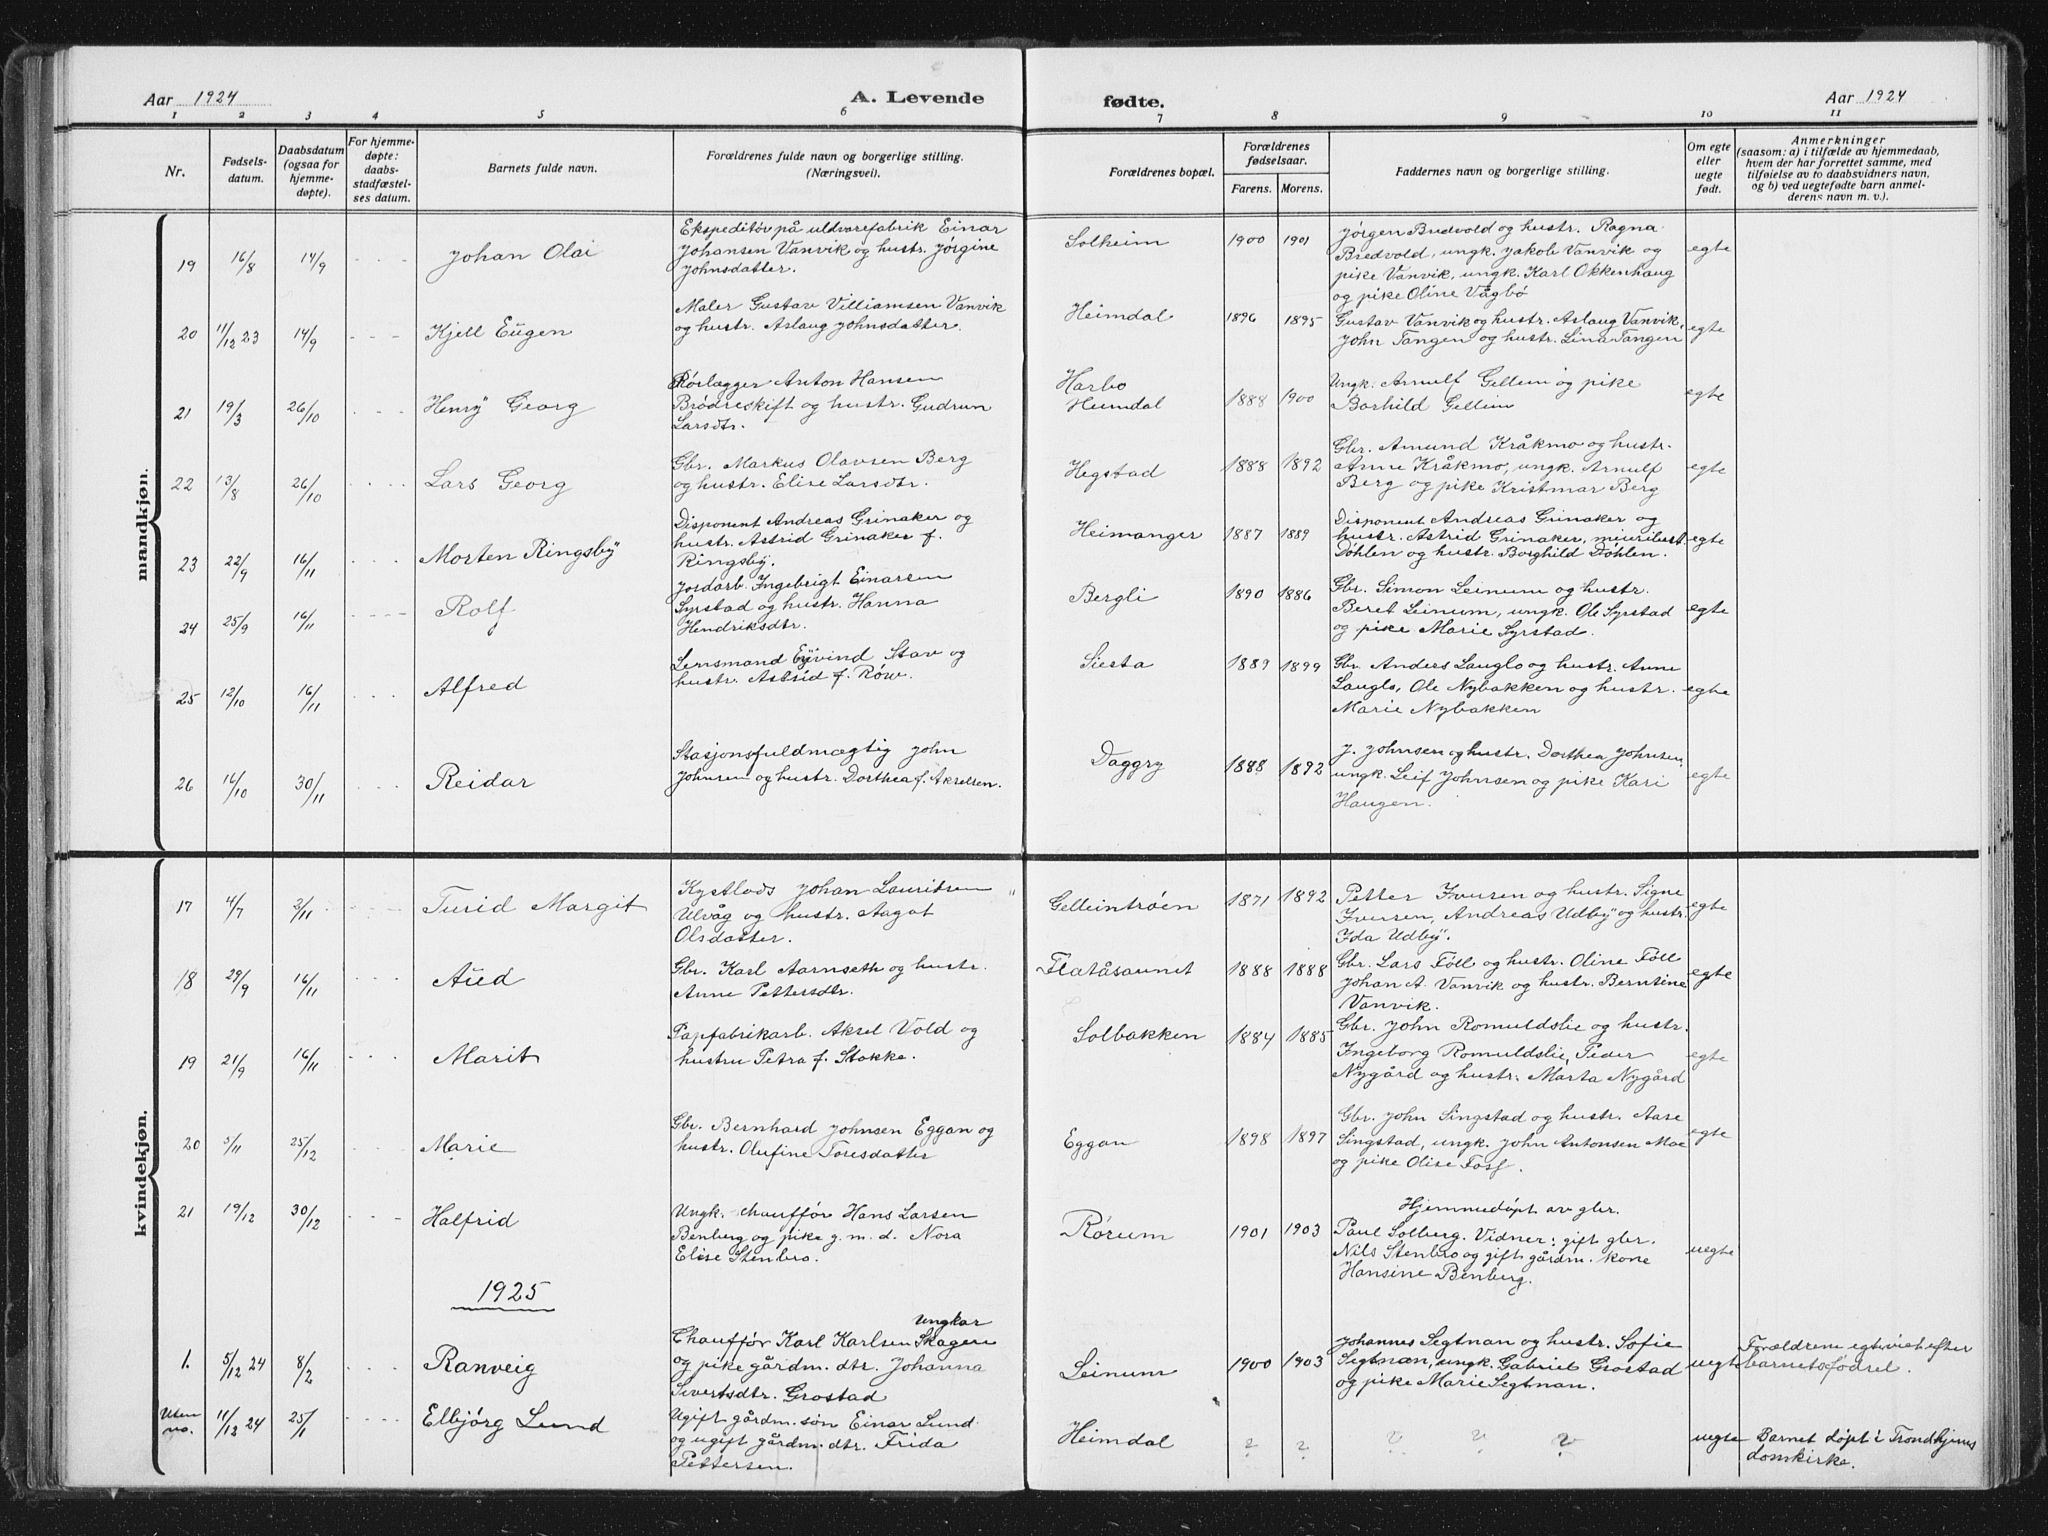 Aar 1924
A. Levende
fødte.
Aar 1924
1 2 3 4 5 6 7 8 9 10 11
Nr.
Fødsels-
datum.
Daabsdatum
(ogsaa for
hjemme-
døpte).
For hjemme-
døpte:
daabs-
stadfæstel-
ses datum.
Barnets fulde navn.
Forældrenes fulde navn og borgerlige stilling.
(Næringsvei).
Forældrenes bopæl.
Forældrenes
fødselsaar.
Farens. Morens.
Faddernes navn og borgerlige stilling.
Om egte
eller
uegte
født.
Anmerkninger
(saasom: a) i tilfælde av hjemmedaab,
hvem der har forrettet samme, med
tilføielse av to daabsvidners navn,
og b) ved uegtefødte barn anmel-
derens navn m. v.).
mandkjøn.
19 16/8 14/9 - - - Johan Olai
Ekspeditör på uldvarefabrik Einar
Johansen Vanvik og hustr. Jörgine
Johnsdatter.
Solheim 1900 1901
Jörgen Bredvold og hustr. Ragna
Bredvold, ungk. Jakob Vanvik og
pike Vanvik, ungk. Karl Okkenhaug
og pike Oline Vågbö
egte
20 11/12 23 14/9 - - - Kjell Eugen
Maler Gustav Villiamsen Vanvik
og hustr. Aslaug Johnsdatter.
Heimdal 1896 1895
Gustav Vanvik og hustr. Aslaug Vanvik,
John Tangen og hustr. Lina Tangen
egte
21 19/3 26/10 - - - Henry Georg
Rörlægger Anton Hansen
Brödreskift og hustr. Gudrun
Larsdtr.
Harbo
Heimdal 1888 1900
Ungk. Arnulf Gellein og pike
Borhild Gellein
egte
22 13/8 26/10 - - - Lars Georg
Gbr. Markus Olavsen Berg
og hustr. Elise Larsdtr.
Hegstad 1888 1892
Gbr. Amund Kråkmo og hustr.
Anne Kråkmo, ungk. Arnulf
Berg og pike Kristmar Berg
egte
23 22/9 16/11 - - - Morten Ringsby
Disponent Andreas Grinaker og
hustr. Astrid Grinaker f.
Ringsby.
Heimanger 1887 1889
Disponent Andreas Grinaker og
hustr. Astrid Grinaker, meieribest.
Döhlen og hustr. Borghild Döhlen.
egte
24 25/9 16/11 - - - Rolf
Jordarb. Ingebrigt Einarsen
Syrstad og hustr. Hanna
Hendriksdtr.
Bergli 1890 1886
Gbr. Simon Leinum og hustr.
Beret Leinum, ungk. Ole Syrstad
og pike Marie Syrstad.
egte
25 12/10 16/11 - - - Alfred
Lensmand Eyvind Stav og
hustr. Astrid f. Röw.
Siesta 1889 1899
Gbr. Anders Lauglo og hustr. Anne
Lauglo, Ole Nybakken og hustr.
Marie Nybakken
egte
26 16/10 30/11 - - - Reidar
Stasjonsfuldmægtig John
Johnsen og hustr. Dorthea f. Akselsen.
Daggry 1888 1892
J. Johnsen og hustr. Dorthea Johnsen,
ungk. Leif Johnsen og pike Kari
Haugen.
egte
kvindekjøn.
17 4/7 2/11 - - - Turid Margit
Kystlods Johan Lauritsen
Ulvåg og hustr. Aagot
Olsdatter.
Gelleintröen 1871 1892
Petter Iversen og hustr. Signe
Iversen, Andreas Udby og hustr.
Ida Udby.
egte
18 29/9 16/11 - - - Aud
Gbr. Karl Aarnseth og hustr.
Anne Pettersdtr.
Flatåsaunet 1888 1888
Gbr. Lars Föll og hustr. Oline Föll
Johan A. Vanvik og hustr. Berntine
Vanvik.
egte
19 21/9 16/11 - - - Marit
Papfabrikarb. Aksel Vold og
hustru Petra f. Stokke.
Solbakken 1884 1885
Gbr. John Romuldslie og hustr.
Ingeborg Romuldslie, Peder
Nygård og hustr. Marta Nygård
egte
20 5/11 25/12 - - - Marie
Gbr. Bernhard Johnsen Eggan og
hustr. Olufine Toresdatter
Eggan 1898 1897
Gbr. John Singstad og hustr. Aase
Singstad, ungk. John Antonsen Moe
og pike Olise Foss.
egte
21 19/12 30/12 - - - Halfrid
Ungk. chaufför Hans Larsen
Benberg og pike g. m. d. Nora
Elise Stenbro.
Rörum 1901 1903
Hjemmedöpt av gbr.
Paul Solberg. Vidner: gift gbr.
Nils Stenbro og gift gårdm. kone
Hansine Benberg.
uegte
1925
1. 5/12 24 8/2 - - - Ranveig
Ungkar
Chaufför Karl Karlsen Skagen
og pike gårdm. dtr. Johanna
Sivertsdtr. Grostad
Leinum 1900 1903
Johannes Segtnan og hustr. Sofie
Segtnan, ungk. Gabriel Grostad
og pike Marie Segtnan.
uegte
Forældrene egteviet efter
barnets födsel.
Uten
no. 11/12 24 25/1 - - - Elbjörg Lund
Ugift gårdm. sön Einar Lund
og ugift gårdm. dtr. Frida
Pettersen.
Heimdal ? ? ? ? ?
uegte
Barnet döpt i Trondhjems
domkirke.